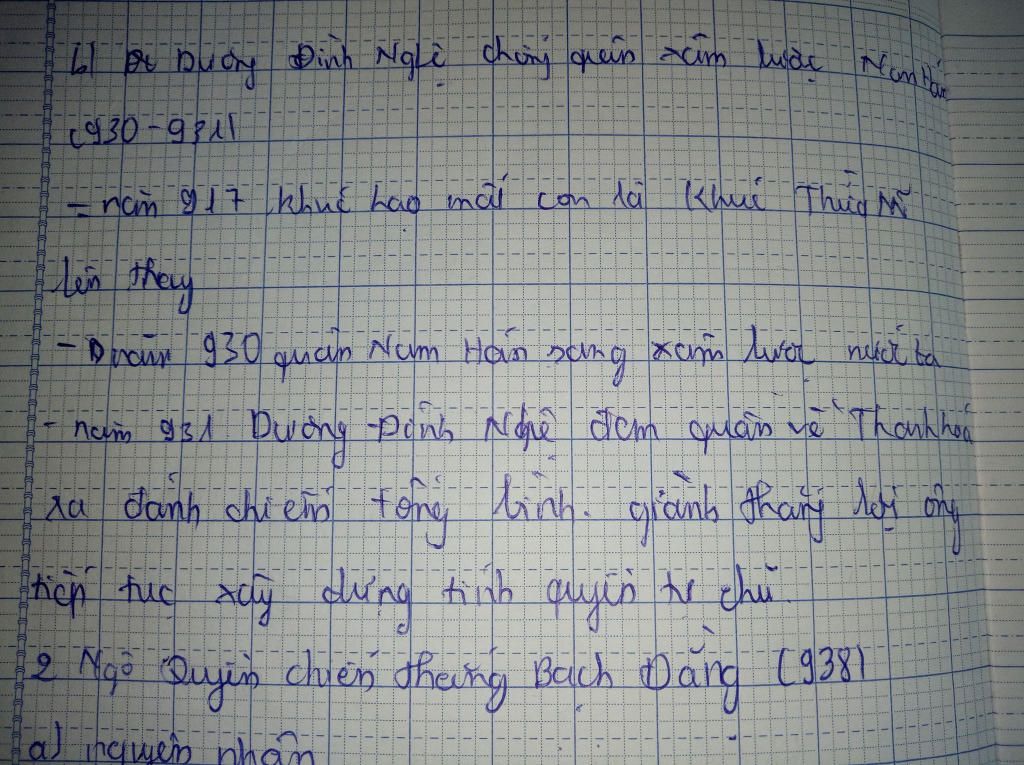 b) Dương Đình Nghệ chống quân xâm lược Nam Hán
(930-931)
- năm 917 khúc hạo mất con là Khúc Thừa Mĩ
lên thay
- năm 930 quân Nam Hán sang xâm lược nước ta
- năm 931 Dương Đình Nghệ đem quân về Thanh hoá
ra đánh chiếm tống bình. giành thắng lợi ông
tiếp tục xây dựng tính quyền tự chủ.
2 Ngô Quyền chiến thắng Bạch Đằng (938)
a) nguyên nhân